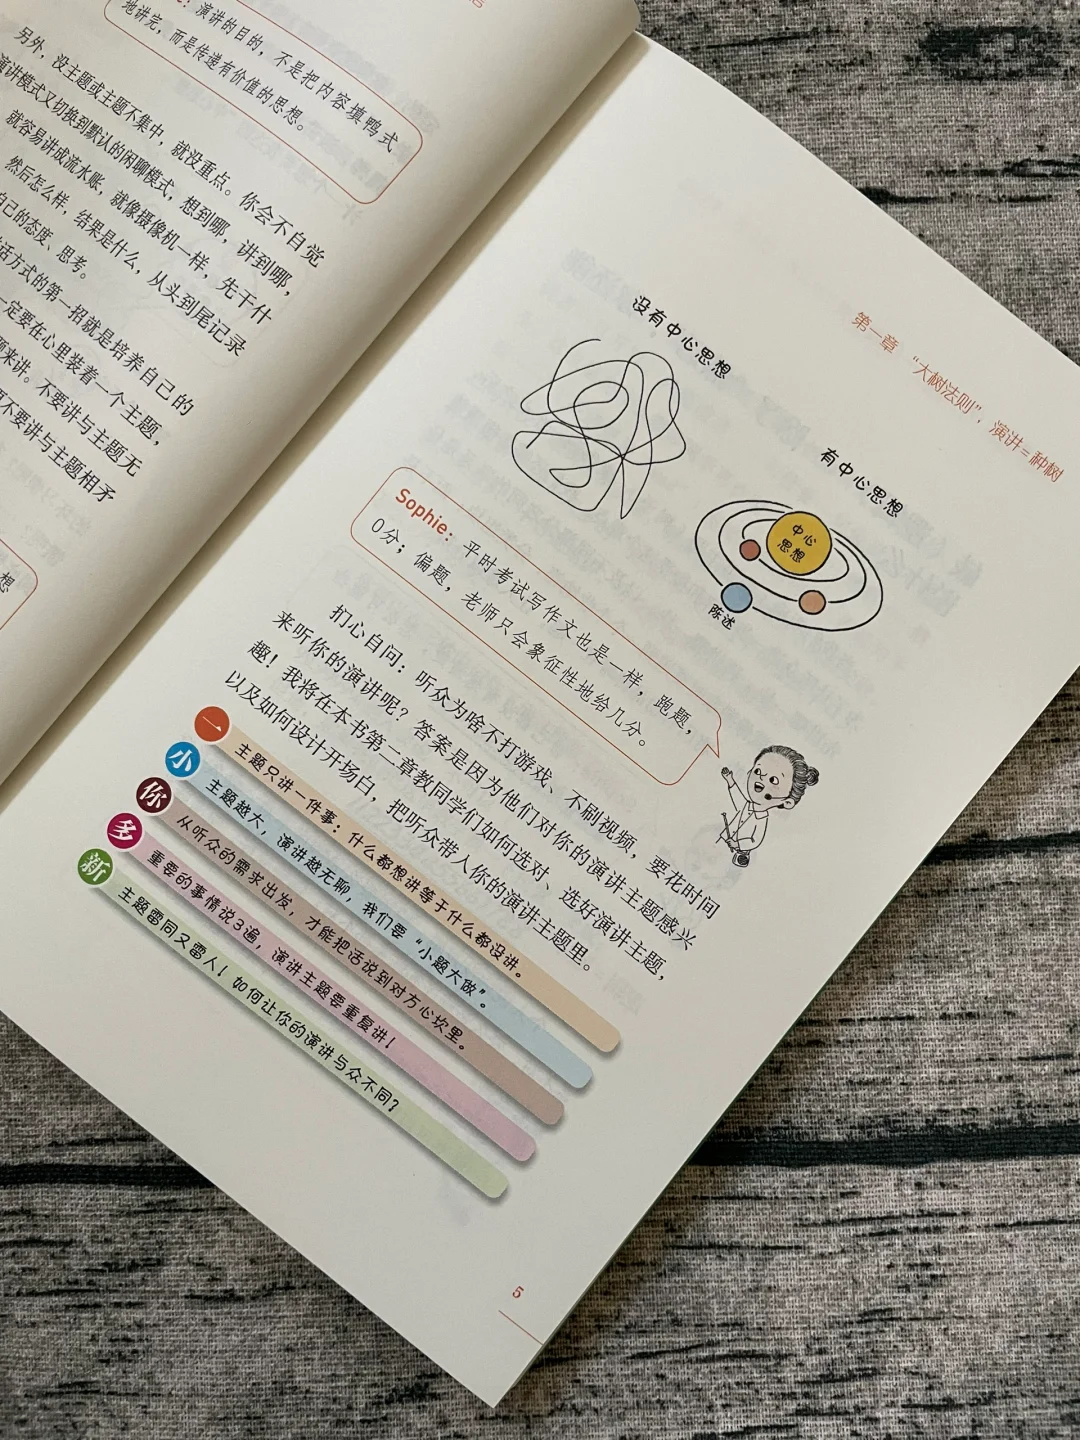 ：演讲的目的，不是把内容填鸭式
地讲完，而是传递有价值的思想。
另外，没主题或主题不集中，就没重点。你会不自觉
演讲模式又切换到默认的闲聊模式，想到哪，讲到哪，
就容易讲成流水账，就像摄像机一样，先干什
然后怎么样，结果是什么，从头到尾记录
自己的态度、思考。
话方式的第一招就是培养自己的
一定要在心里装着一个主题，
题来讲。不要讲与主题无
不要讲与主题相矛
想
第一章 “大树法则”，演讲=种树
没有中心思想
有中心思想
中心
思想
陈述
Sophie：平时考试写作文也是一样，跑题，
0分；偏题，老师只会象征性地给几分。
扪心自问：听众为啥不打游戏、不刷视频，要花时间
来听你的演讲呢？答案是因为他们对你的演讲主题感兴
趣！我将在本书第二章教同学们如何选对、选好演讲主题，
以及如何设计开场白，把听众带入你的演讲主题里。
一 主题只讲一件事：什么都想讲等于什么都没讲。
小 主题越大，演讲越无聊，我们要“小题大做”。
你 从听众的需求出发，才能把话说到对方心坎里。
多 重要的事情说3遍，演讲主题要重复讲！
新 主题雷同又雷人！如何让你的演讲与众不同？
5